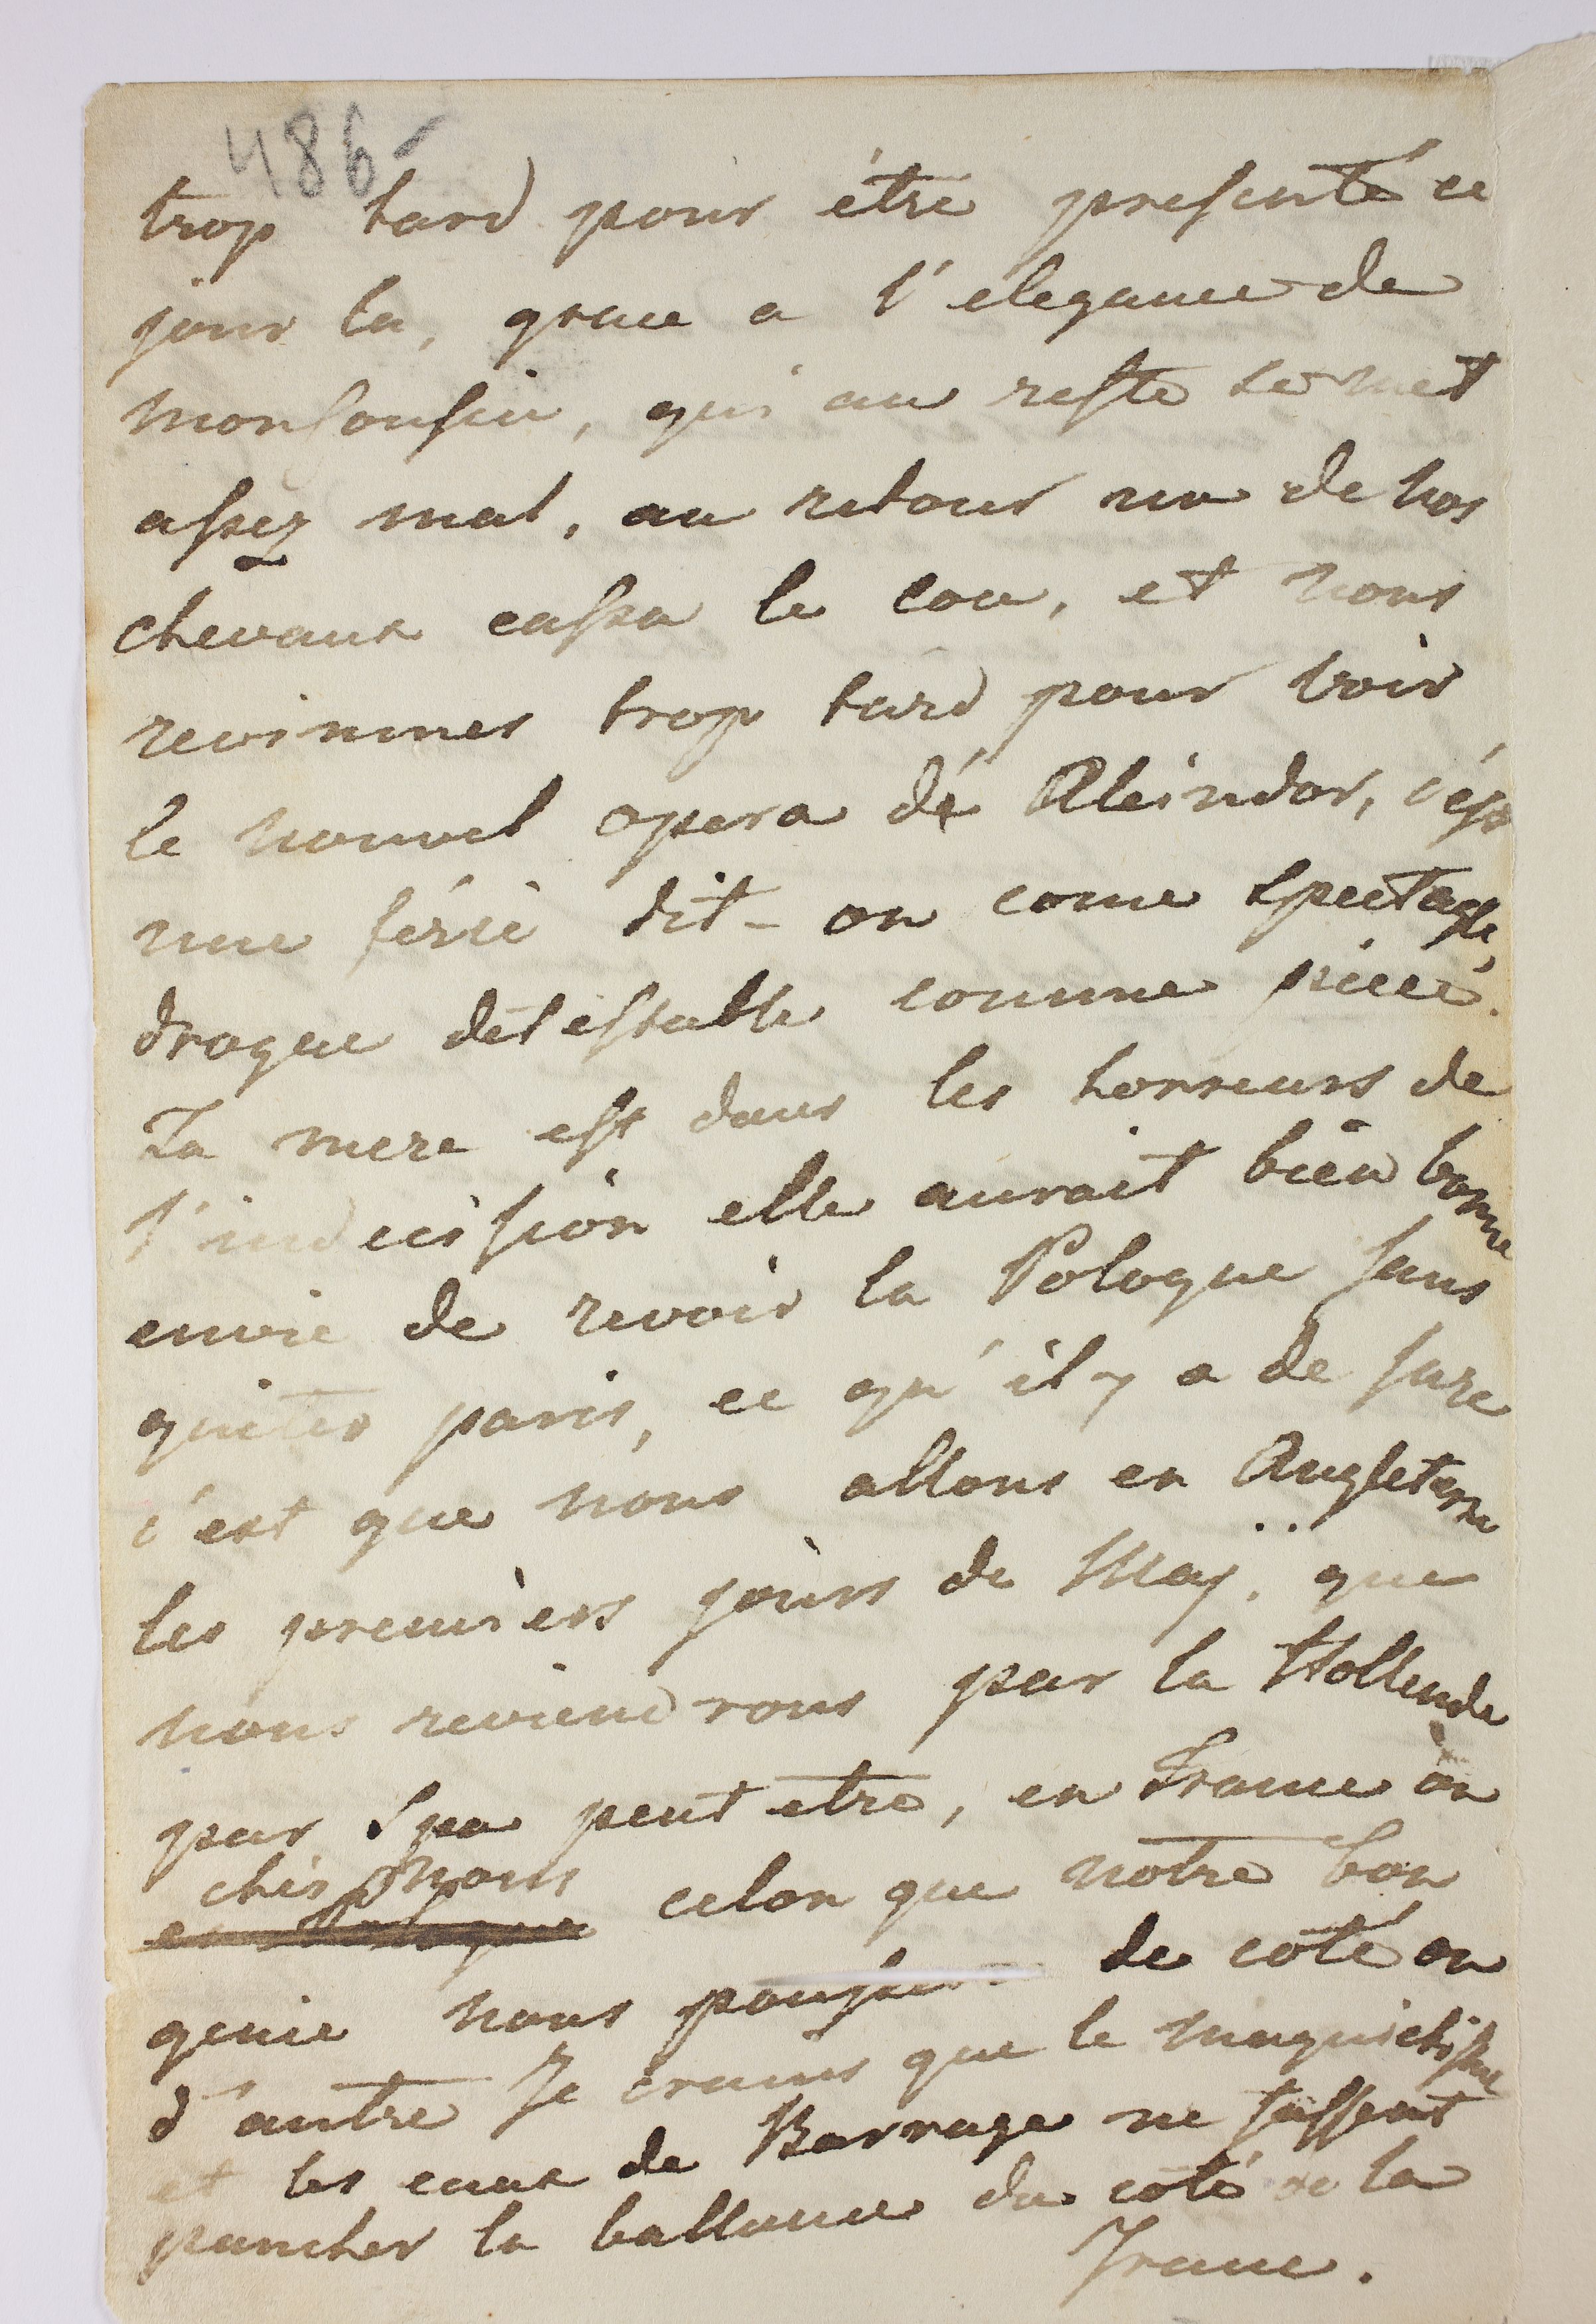 486-
trop tard pour étre presenté ce
jour la, grace a l'élégance de
monsousin, qui au reste se met
assez mal, au retour un de nos
chevaux cassa le cou, et nous
revinmes trop tard pour voir
le nouvel opera dé Alcindor, c'ést
une férie dit-on come spectacle,
drogue détestable comme piéce.
Ta mere est dans les horreurs de
l'indecision elle aurait bien bonne
envie de revoir la Pologne sans
quiter paris, ce qu'il y a de sure
c'est que nous allons en Angleterre
les premiers jours de Maÿ. que
nous reviendrons par la Hollende
par Spa peut etre, en France ou
chés nous
en Pologne celon que notre bon
genie nous poussera de coté ou
d'autre Je crains que le magnetisme
et les eaux de Barrage ne fassent
pancher la ballance du coté de la
France.